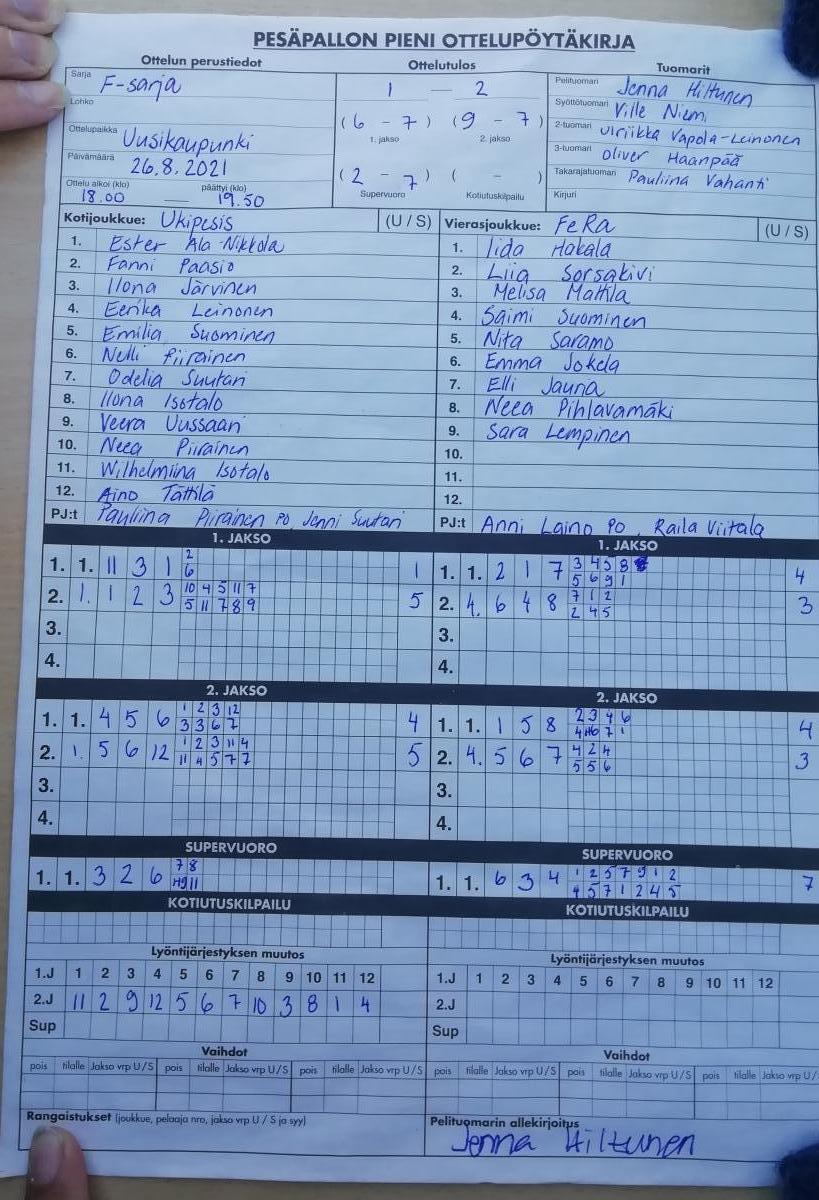 PESÄPALLON PIENI OTTELUPÖYTÄKIRJA
Ottelun perustiedot
Sarja F-sarja
Lohko
Ottelupaikka Uusikaupunki
Päivämäärä 26.8.2021
Ottelu alkoi (klo) 18.00 päättyi (klo) 19.50
Ottelutulos
1 — 2
(6 - 7) (9 - 7)
1. jakso 2. jakso
(2 - 7) ( - )
Supervuoro Kotiutuskilpailu
Tuomarit
Pelituomari Jenna Hiltunen
Syöttötuomari Ville Niemi
2-tuomari Ulriikka Vapola-Leinonen
3-tuomari Oliver Haanpää
Takarajatuomari Pauliina Vahanti
Kirjuri
Kotijoukkue: Ukipesis (U / S)
1. Ester Ala-Nikkola
2. Fanni Paasio
3. Ilona Järvinen
4. Eerika Leinonen
5. Emilia Suominen
6. Nelli Piirainen
7. Odelia Suutari
8. Ilona Isotalo
9. Veera Uussaari
10. Neea Piirainen
11. Wilhelmiina Isotalo
12. Aino Tättilä
PJ:t Pauliina Piirainen PO, Jenni Suutari
Vierasjoukkue: FeRa (U / S)
1. Iida Hakala
2. Liia Sorsakivi
3. Melisa Mattila
4. Saimi Suominen
5. Nita Saramo
6. Emma Jokela
7. Elli Jauna
8. Neea Pihlavamäki
9. Sara Lempinen
10.
11.
12.
PJ:t Anni Laino PO, Raila Viitala
1. JAKSO
1. 1. 11 3 1 2 1
6
2. 1. 1 2 3 10 4 5 11 7 5
5 11 7 8 9
3.
4.
1. JAKSO
1. 1. 2 1 7 3 4 5 8 4
5 6 9 1
2. 4. 6 4 8 7 1 2 3
2 4 5
3.
4.
2. JAKSO
1. 1. 4 5 6 1 2 3 12 4
3 3 6 7
2. 1. 5 6 12 1 2 3 11 4 5
11 4 5 7 7
3.
4.
2. JAKSO
1. 1. 1 5 8 2 3 4 6 4
4 6 7 1
2. 4. 5 6 7 4 2 4 3
5 5 6
3.
4.
SUPERVUORO
1. 1. 3 2 6 7 8
9 11
SUPERVUORO
1. 1. 6 3 4 1 2 5 7 9 1 2 7
4 5 7 1 2 4 5
KOTIUTUSKILPAILU
KOTIUTUSKILPAILU
Lyöntijärjestyksen muutos
1.J 1 2 3 4 5 6 7 8 9 10 11 12
2.J 11 2 9 12 5 6 7 10 3 8 1 4
Sup
Lyöntijärjestyksen muutos
1.J 1 2 3 4 5 6 7 8 9 10 11 12
2.J
Sup
Vaihdot
pois tilalle Jakso vrp U / S pois tilalle Jakso vrp U / S pois tilalle Jakso vrp U / S
Vaihdot
pois tilalle Jakso vrp U / S pois tilalle Jakso vrp U / S pois tilalle Jakso vrp U /
Rangaistukset (joukkue, pelaaja nro, jakso vrp U / S ja syy)
Pelituomarin allekirjoitus
Jenna Hiltunen